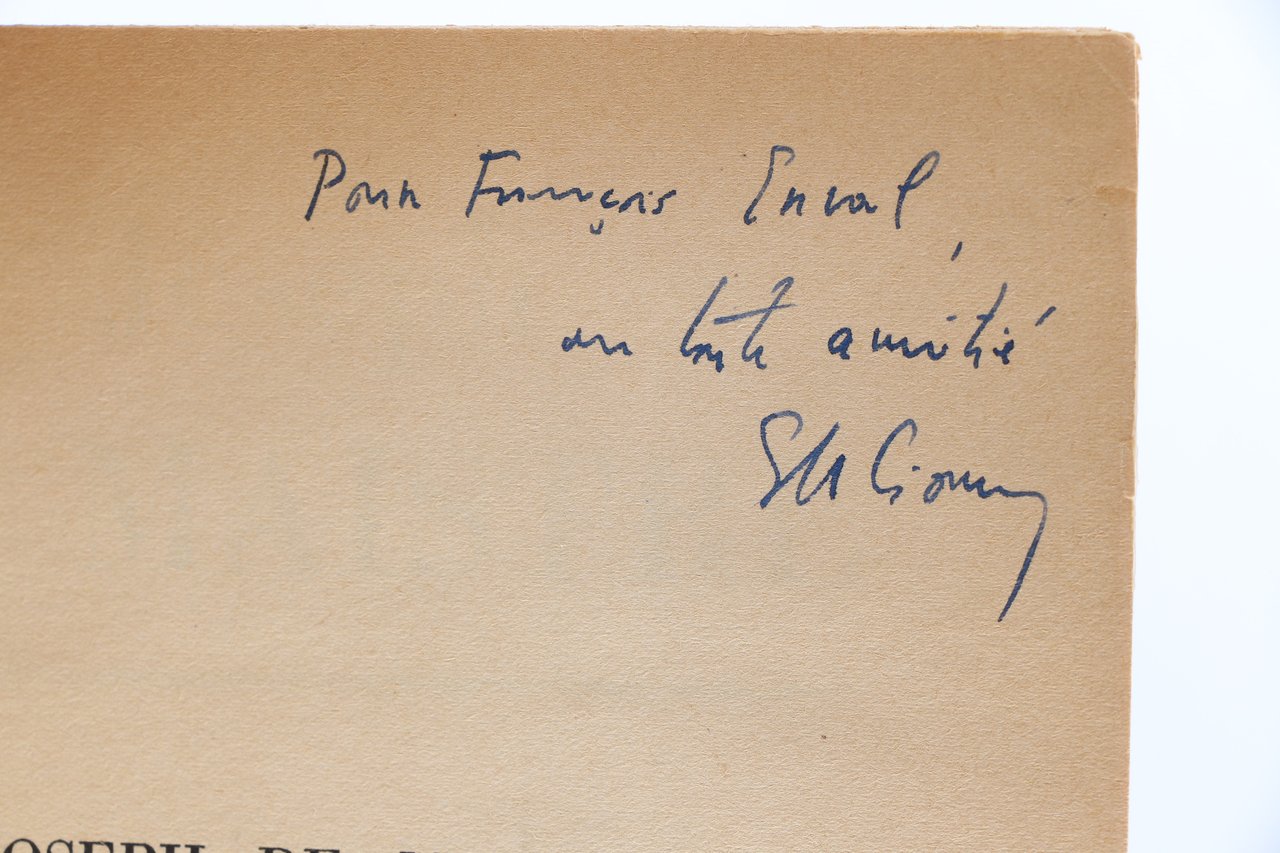 Pour François Erval,
en toute amitié
EM Cioran
JOSEPH DE